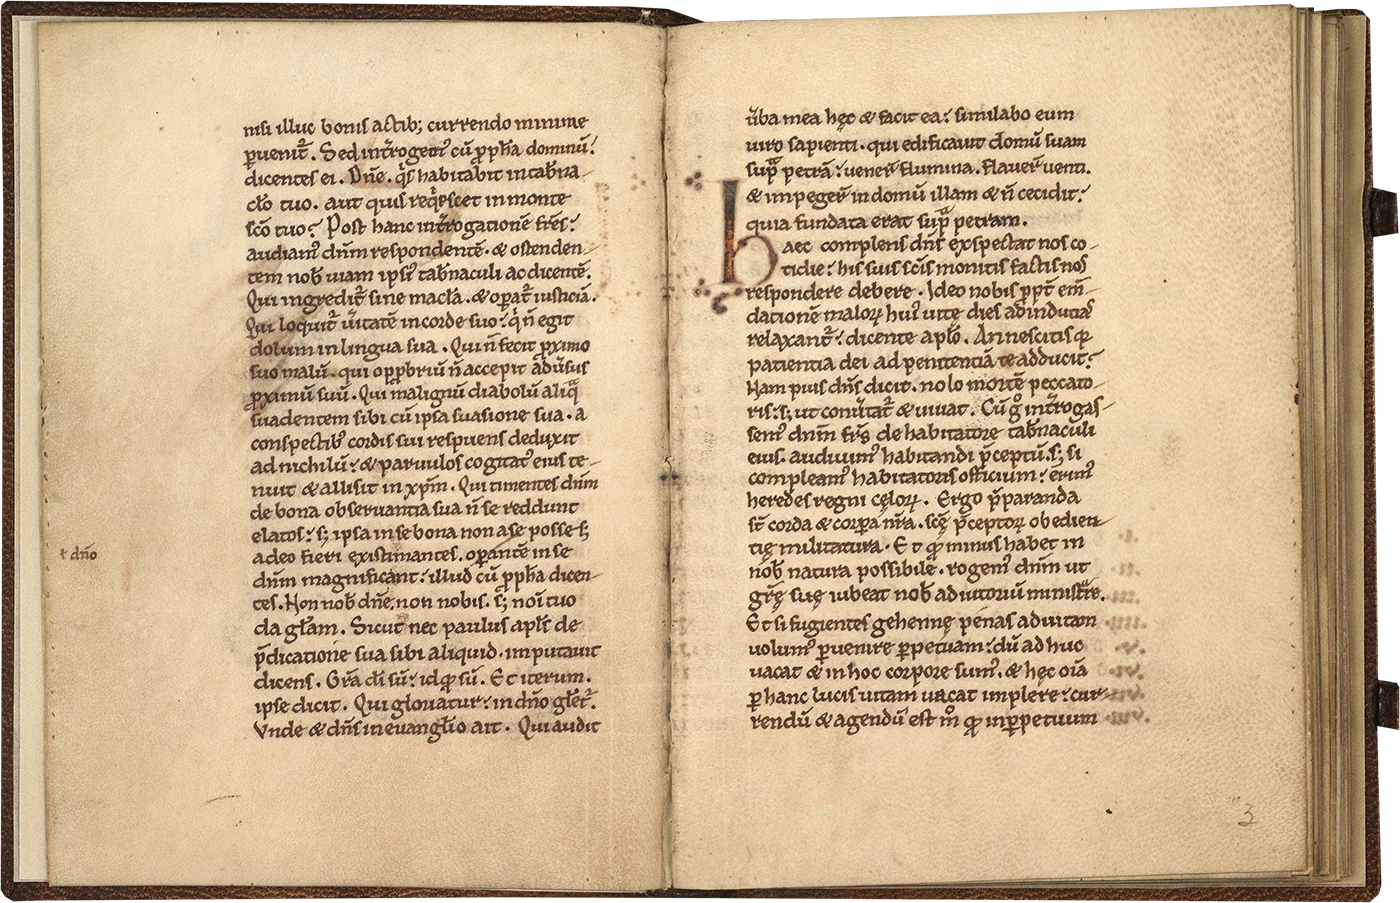 nisi illuc bonis actib; currendo minime
ꝑuenit᷑. Sed int̄rogem᷒ cū ꝓph̄a dominū.
dicentes ei. Dn̄e. q̇s habitabit in tab̄na-
cło tuo. aut quis reqͥescet in monte
sc̄o tuo? Post hanc int̄rogationē fr̄s:
audiam᷒ dn̄m respondentē. & ostenden-
tem nob̄ uiam ipsi᷒ tab̄naculi ac dicentē.
Qui ingredit᷑ sine macła. & oꝑat᷑ iusticiā.
Qui loquit᷑ ūitatē in corde suo: q̇ n̄ egit
dolum in lingua sua. Qui n̄ fecit ꝓximo
suo malū. qui opꝓbriū n̄ accepit adūsus
ꝓximū suū. Qui malignū diabolū aliqᷓ
suadentem sibi cū ipsa suasione sua. a
conspectib᷒ cordis sui respuens deduxit
ad nichilū: & paruulos cogitat᷒ eius te-
nuit & allisit in xp̄m. Qui timentes dn̄m
de bona obseruantia sua n̄ se reddunt
elatos: s; ipsa in se bona non a se posse. s;
a deo fieri existimantes. oꝑantē in se
dn̄m magnificant: illud cū ꝓph̄a dicen-
tes. Non nob̄ dn̄e, non nobis. s; noī tuo
da głam. Sicut nec paulus apłs de
p̄dicatione sua sibi aliquid. imputauit
dicens. Gr̄a dī sū: id qͦ sū. Et iterum.
ipse dicit. Qui gloriatur: in dn̄o głet᷑.
Vnde & dn̄s in euangłio ait. Qui audit
ł dn̄o
ūba mea hęc & facit ea: similabo eum
uiro sapienti. qui edificauit domū suam
supᷓ petrā: uener̄ flumina. flauer̄ uenti.
& impeger̄ in domū illam & n̄ cecidit:
quia fundata erat supᷓ petram.
haec complens dn̄s exspectat nos co-
tidie: his suis sc̄is monitis factis nos
respondere debere. Ideo nobis ꝓpt̄ em̄-
dationē maloꝝ hui᷒ uite dies ad inducias
relaxant᷑: dicente apło. An nescitis qꝫ
patientia dei ad penitentiā te adducit:
Nam pius dn̄s dicit. nolo mortē peccato-
ris: s; ut conūtat᷑ & uiuat. Cū gͦ int̄rogas-
sem᷒ dn̄m fr̄s de habitatore tab̄naculi
eius. audiuim᷒ habitandi p̄ceptū. s; si
compleam᷒ habitatoris officium: erim᷒
heredes regni cęloꝝ. Ergo p̄paranda
st̄ corda & corꝑa nr̄a. scę p̄ceptoꝝ obedien-
tię militatura. Et qͦ minus habet in
nob̄ natura possibile. rogem᷒ dn̄m ut
gr̄ę suę iubeat nob̄ adiutoriū ministrᷓe.
Et si fugientes gehennę penas ad uitam
uolum᷒ ꝑuenire ꝑpetuam: dū adhuc
uacat & in hoc corpore sum᷒. & hęc oīa
ꝑ hanc lucis uitam uacat implere: cur-
rendū & agendū est mͦ qͦ in ꝑpetuum
3